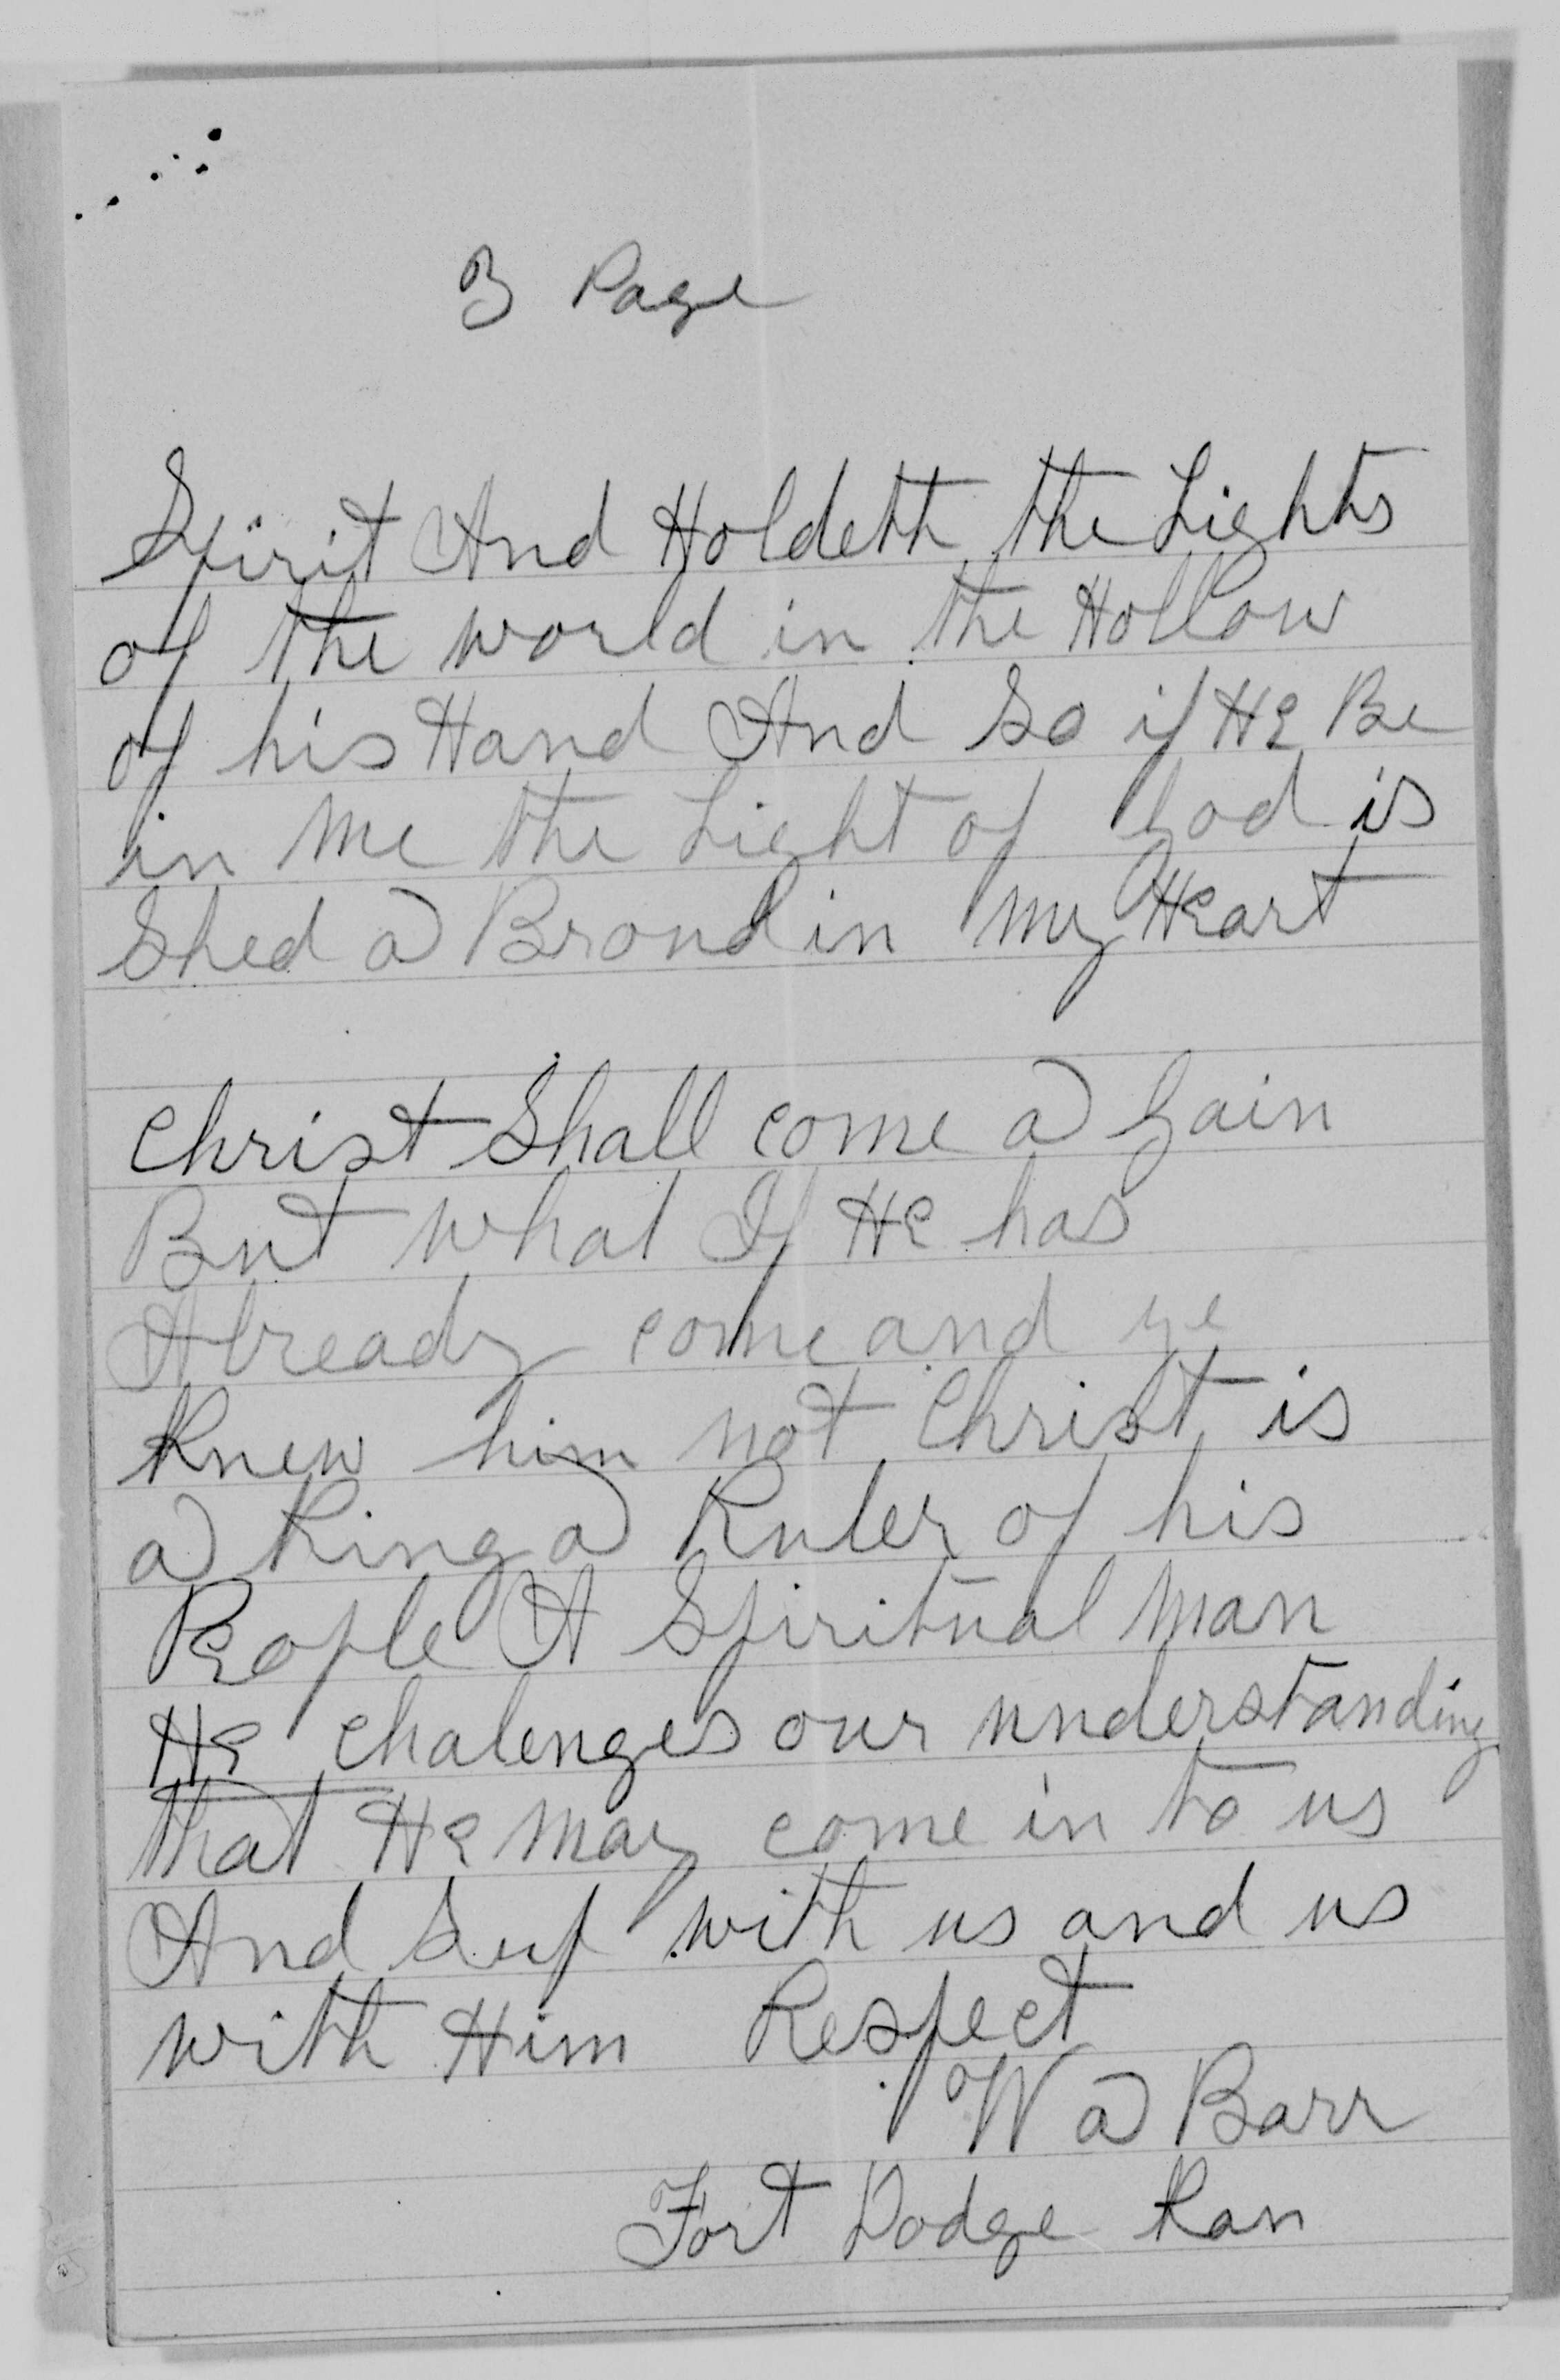 3 Page
Spirit And Holdeth the Lights
of the world in the Hollow
of his Hand And So if He Be
in Me the Light of God is
Shed a Broad in my Heart
Christ Shall come a Gain
But what If He has
Already come and ye
Knew him not Christ is
a King a Ruler of his
People A Spiritual Man
He chalenges our understanding
that He May come in to us
And Sup with us and us
with Him Respect
W a Barr
Fort Dodge Kan